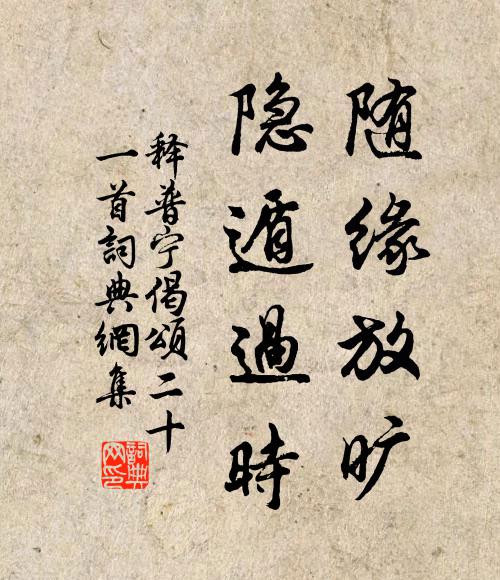 随缘放旷
隐遁過時
释普宁偈頌二十
一首詞典網集
詞典
网印